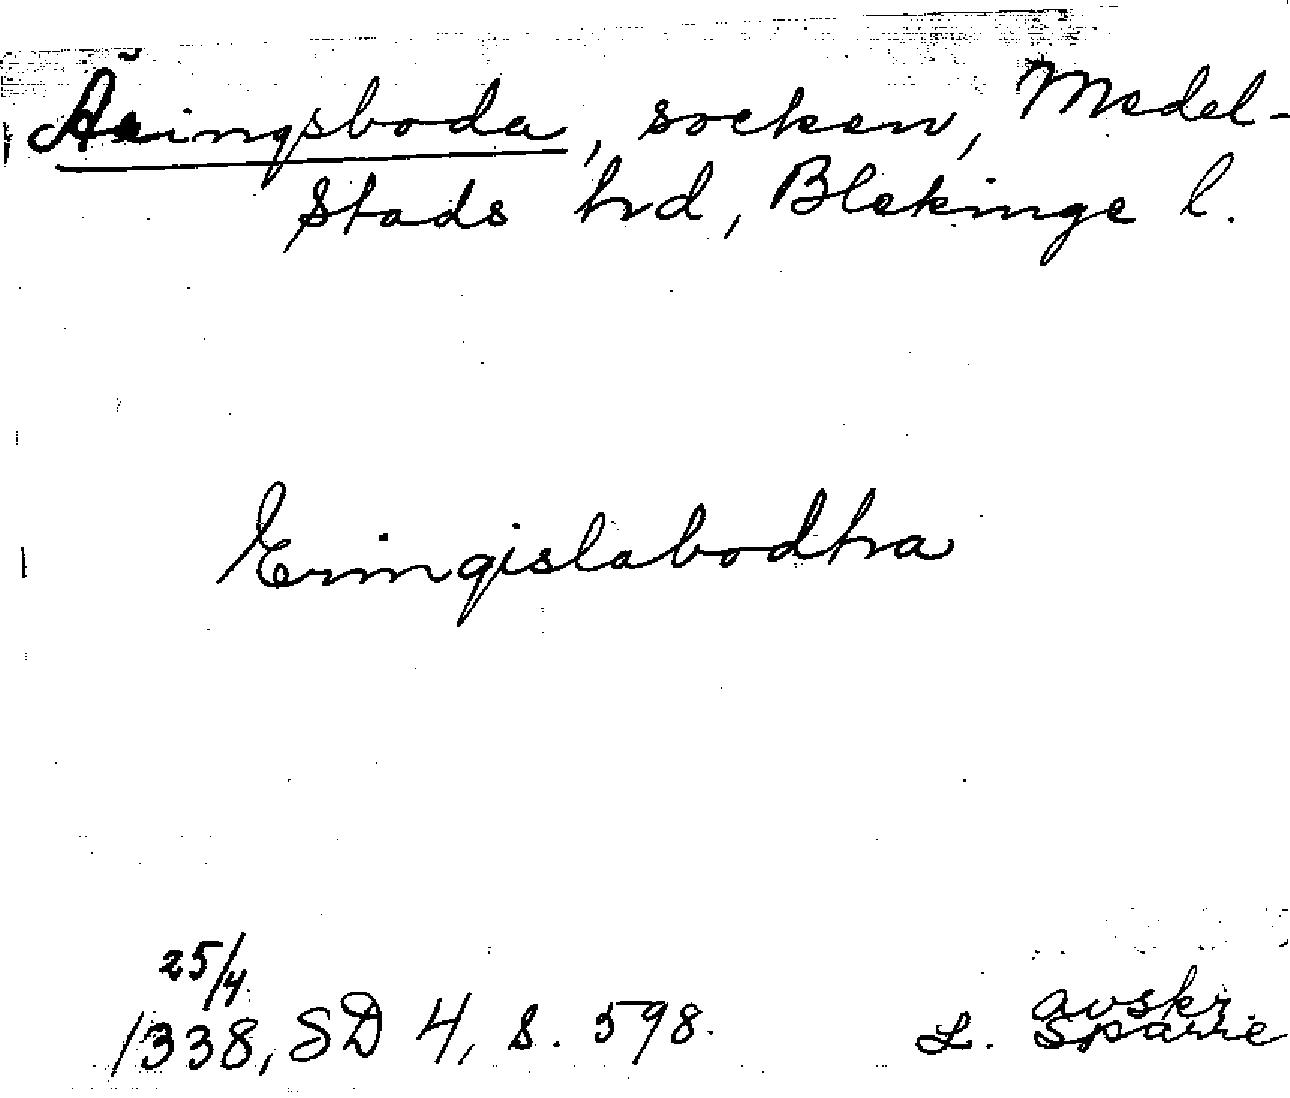 Äringsboda, socken, Medel-
stads hrd, Blekinge l.
Eringislabodha
25/4
1338, SD 4, s. 598.
avskr.
L. Sparre